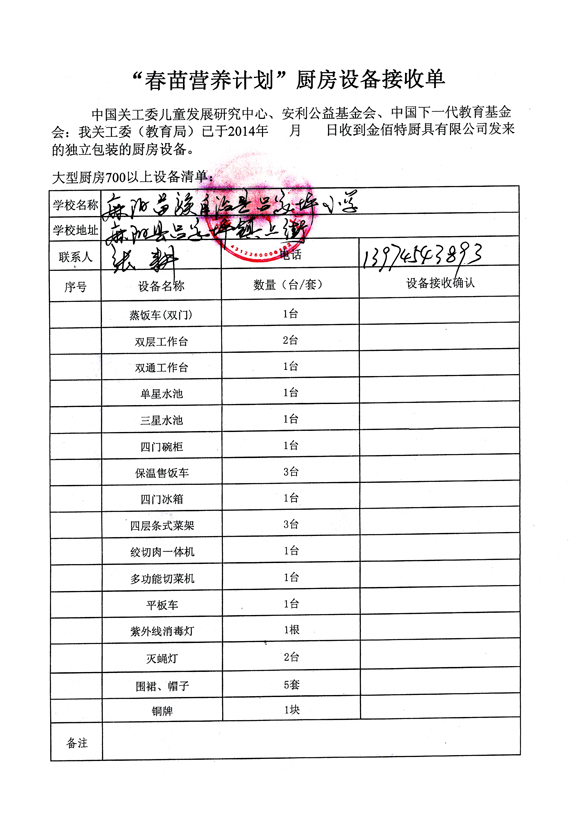 “春苗营养计划”厨房设备接收单
中国关工委儿童发展研究中心、安利公益基金会、中国下一代教育基金
会：我关工委（教育局）已于2014年 月 日收到金佰特厨具有限公司发来
的独立包装的厨房设备。
大型厨房700以上设备清单：
学校名称 麻阳苗族自治县吕家坪小学
学校地址 麻阳县吕家坪镇上街
联系人 张 电话 13974543893
序号 设备名称 数量（台/套） 设备接收确认
蒸饭车(双门) 1台
双层工作台 2台
双通工作台 1台
单星水池 1台
三星水池 1台
四门碗柜 1台
保温售饭车 3台
四门冰箱 1台
四层条式菜架 3台
绞切肉一体机 1台
多功能切菜机 1台
平板车 1台
紫外线消毒灯 1根
灭蝇灯 2台
围裙、帽子 5套
铜牌 1块
备注